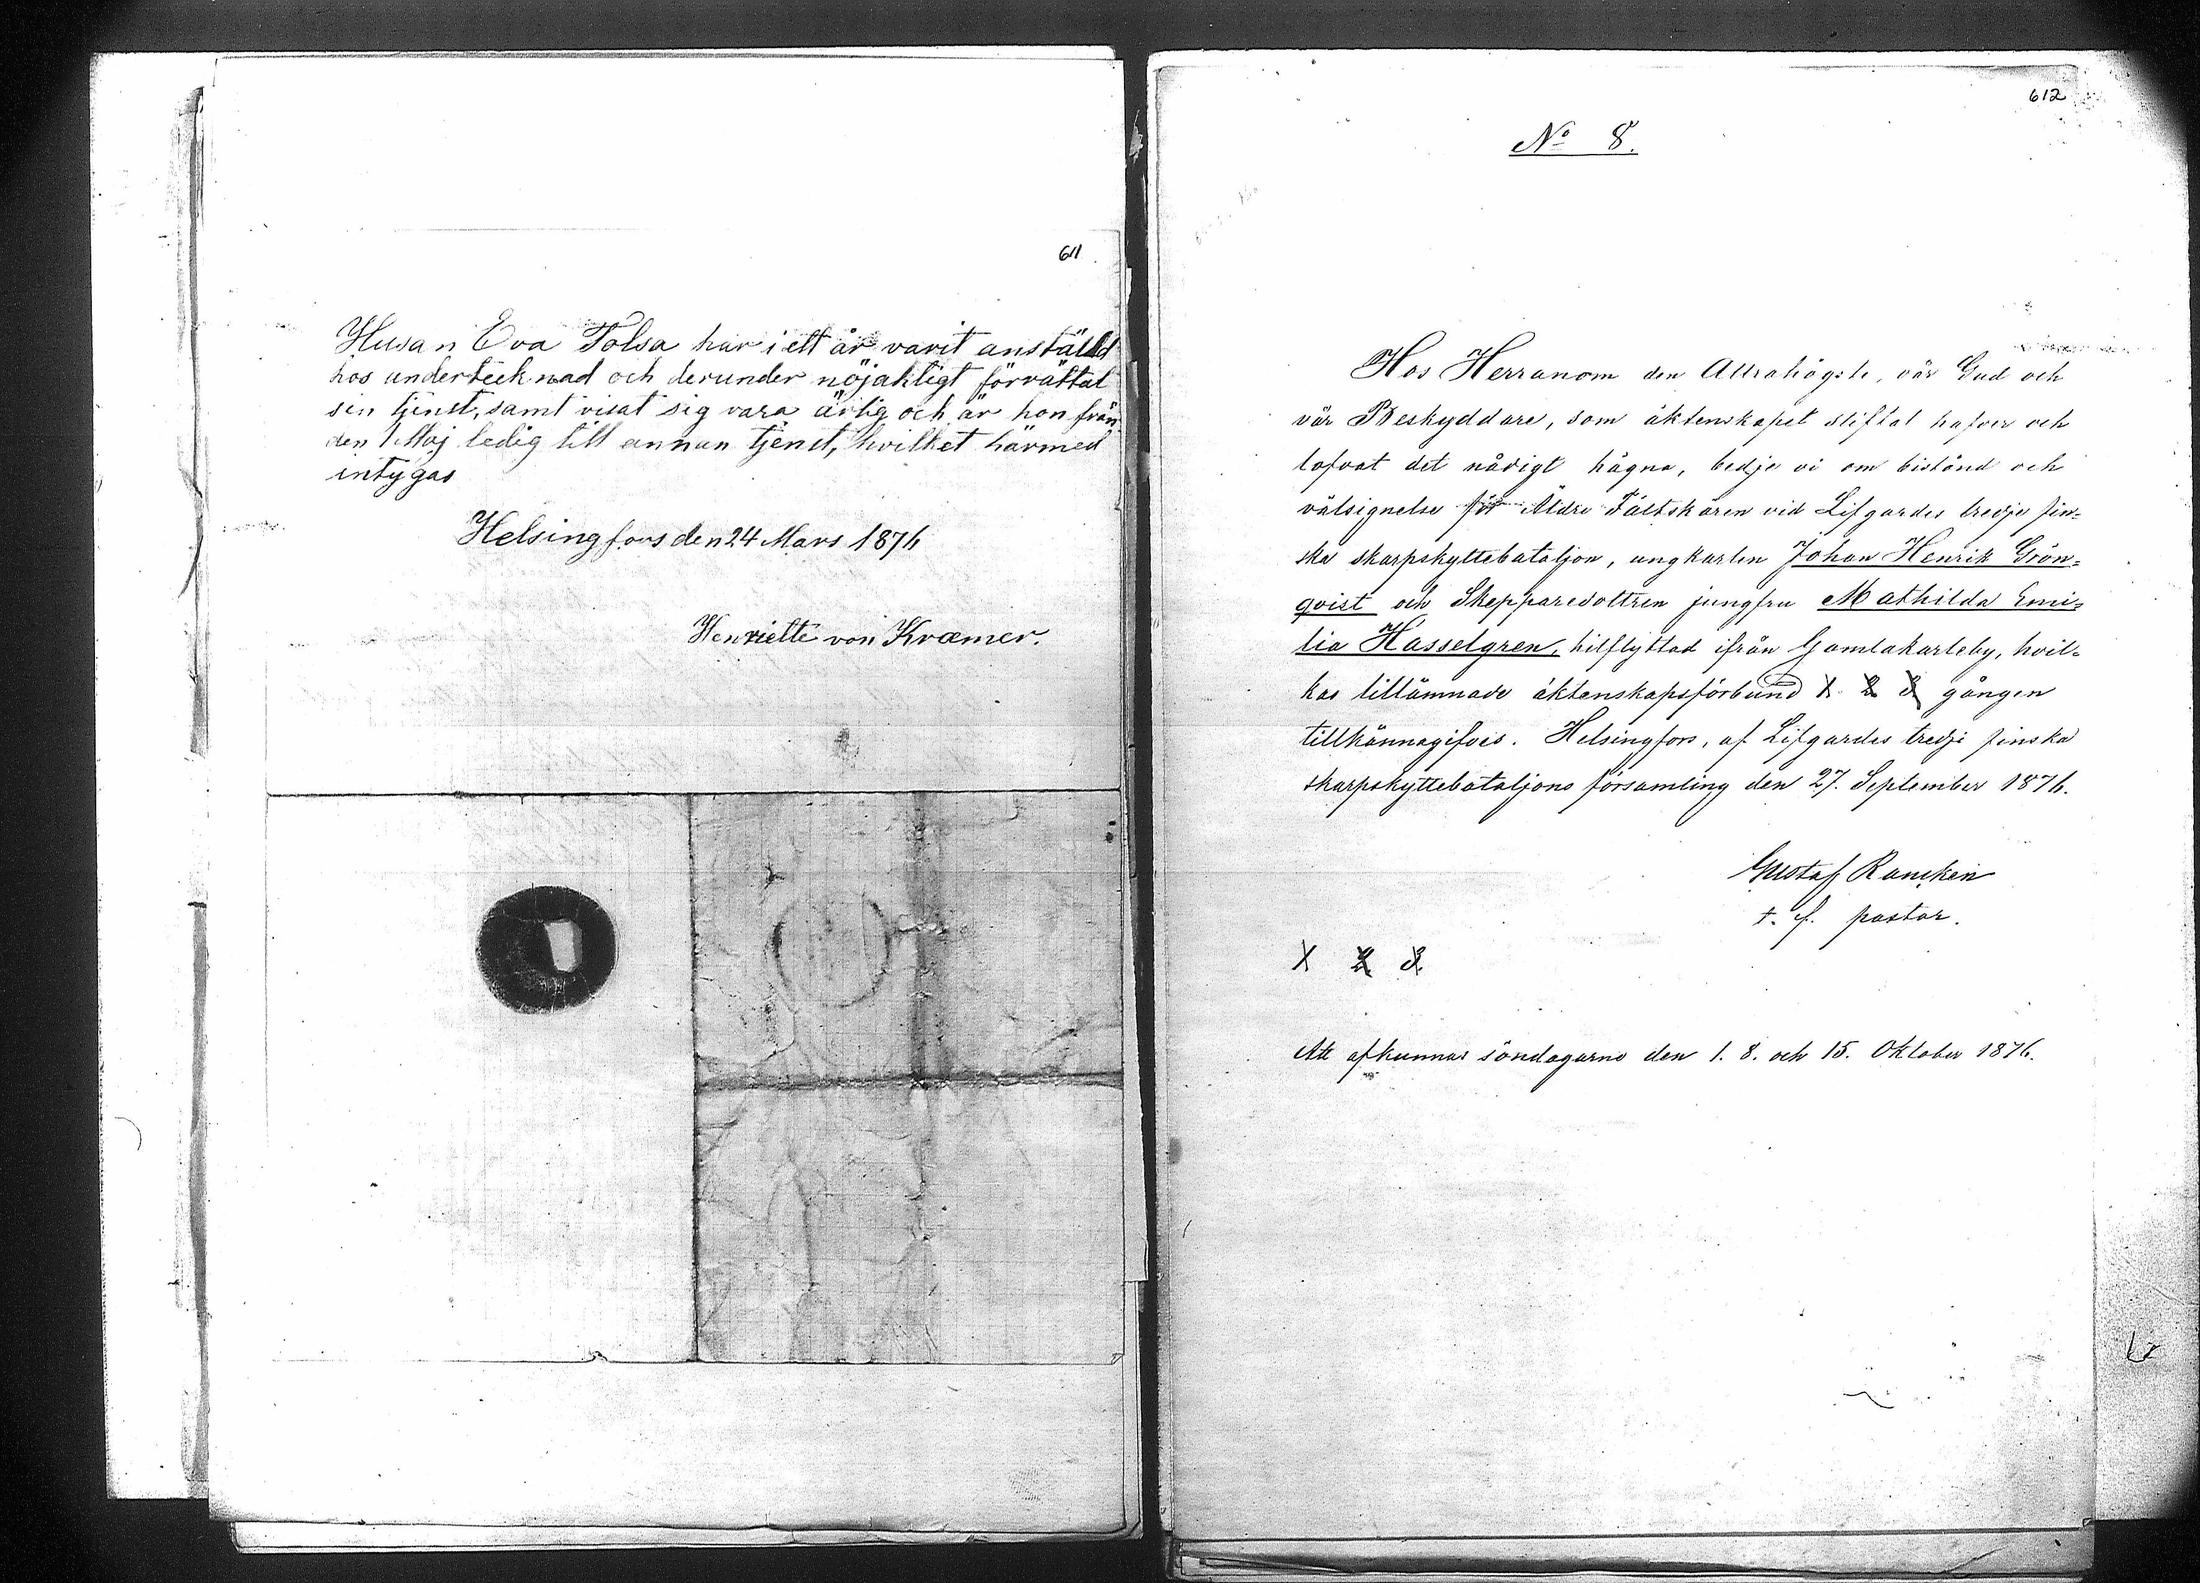 611
Husan Eva Tolsa har i ett år varit anställd
hos undertecknad och derunder nöjaktigt förrättat
sin tjenst, samt visat sig vara ärlig och är hon från
den 1 Maj ledig till annan tjenst, hvilket härmed
intygas
Helsingfors den 24 Mars 1876
Henriette von Kræmer.
612
No 8.
Hos Herranom den Allrahögste, vår Gud och
vår Beskyddare, som äktenskapet stiftat hafver och
lofvat det nådigt hägna, bedje vi om bistånd och
välsignelse för Äldre Fältskären vid Lifgardes tredje fin=
ska skarpskyttebataljon, ungkarlen Johan Henrik Grön=
qvist och Skepparedottren jungfru Mathilda Emi=
lia Hasselgren, hitflyttad ifrån Gamlakarleby, hvil=
kas tillämnade äktenskapsförbund 1 2 3 gången
tillkännagifves. Helsingfors, af Lifgardes tredje finska
skarpskyttebataljons församling den 27. September 1876.
Gustaf Rancken
t. f. pastor.
1 2 3.
Att afkunnas söndagarne den 1. 8. och 15. Oktober 1876.